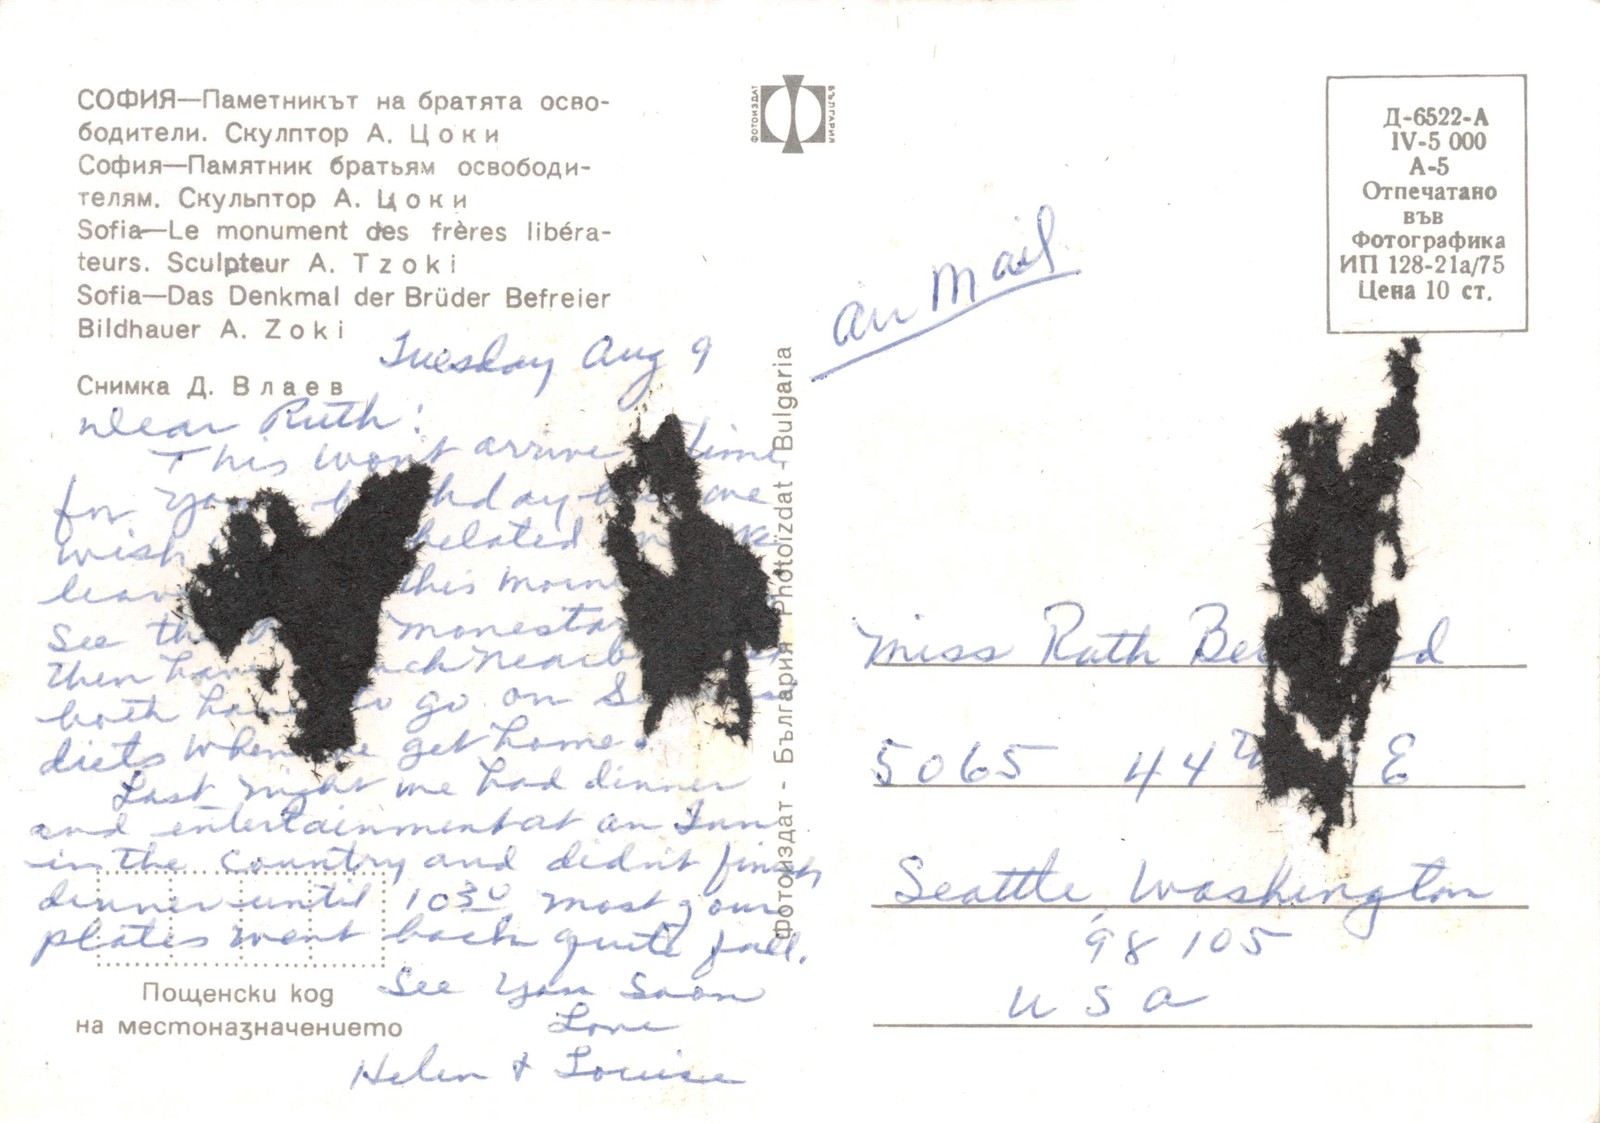 СОФИЯ—Паметникът на братята осво-
бодители. Скулптор А. Цоки
София—Памятник братьям освободи-
телям. Скульптор А. Цоки
Sofia—Le monument des frères libéra-
teurs. Sculpteur A. Tzoki
Sofia—Das Denkmal der Brüder Befreier
Bildhauer A. Zoki
Снимка Д. Влаев
ФОТОИЗДАТ
БЪЛГАРИЯ
Д-6522-А
IV-5 000
А-5
Отпечатано
във
Фотографика
ИП 128-21а/75
Цена 10 ст.
Фотоиздат - България Photoïzdat - Bulgaria
Tuesday Aug 9
Dear Ruth:
This won't arrive time
for your
wish belated
this
See monestary
then
both to go on
diets when we get home.
Last night we had dinner
and entertainment at an Inn
in the country and didn't finish
dinner until 10 30 most your
plates went back quite full.
See you Soon
Love
Helen & Louise
Пощенски код
на местоназначението
Air Mail
Miss Ruth
5065 44th E
Seattle Washington
98105
USA